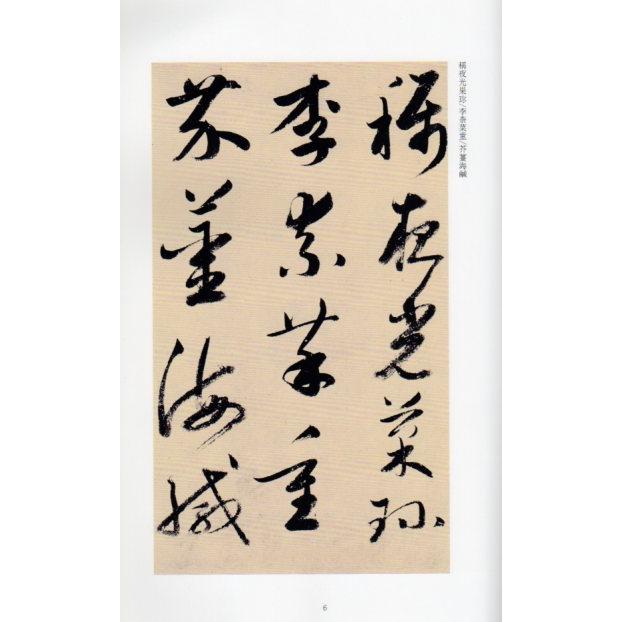 稱夜光菓珍
李柰菜重
芥薑海鹹
稱夜光果珍/李柰菜重/芥薑海鹹
6